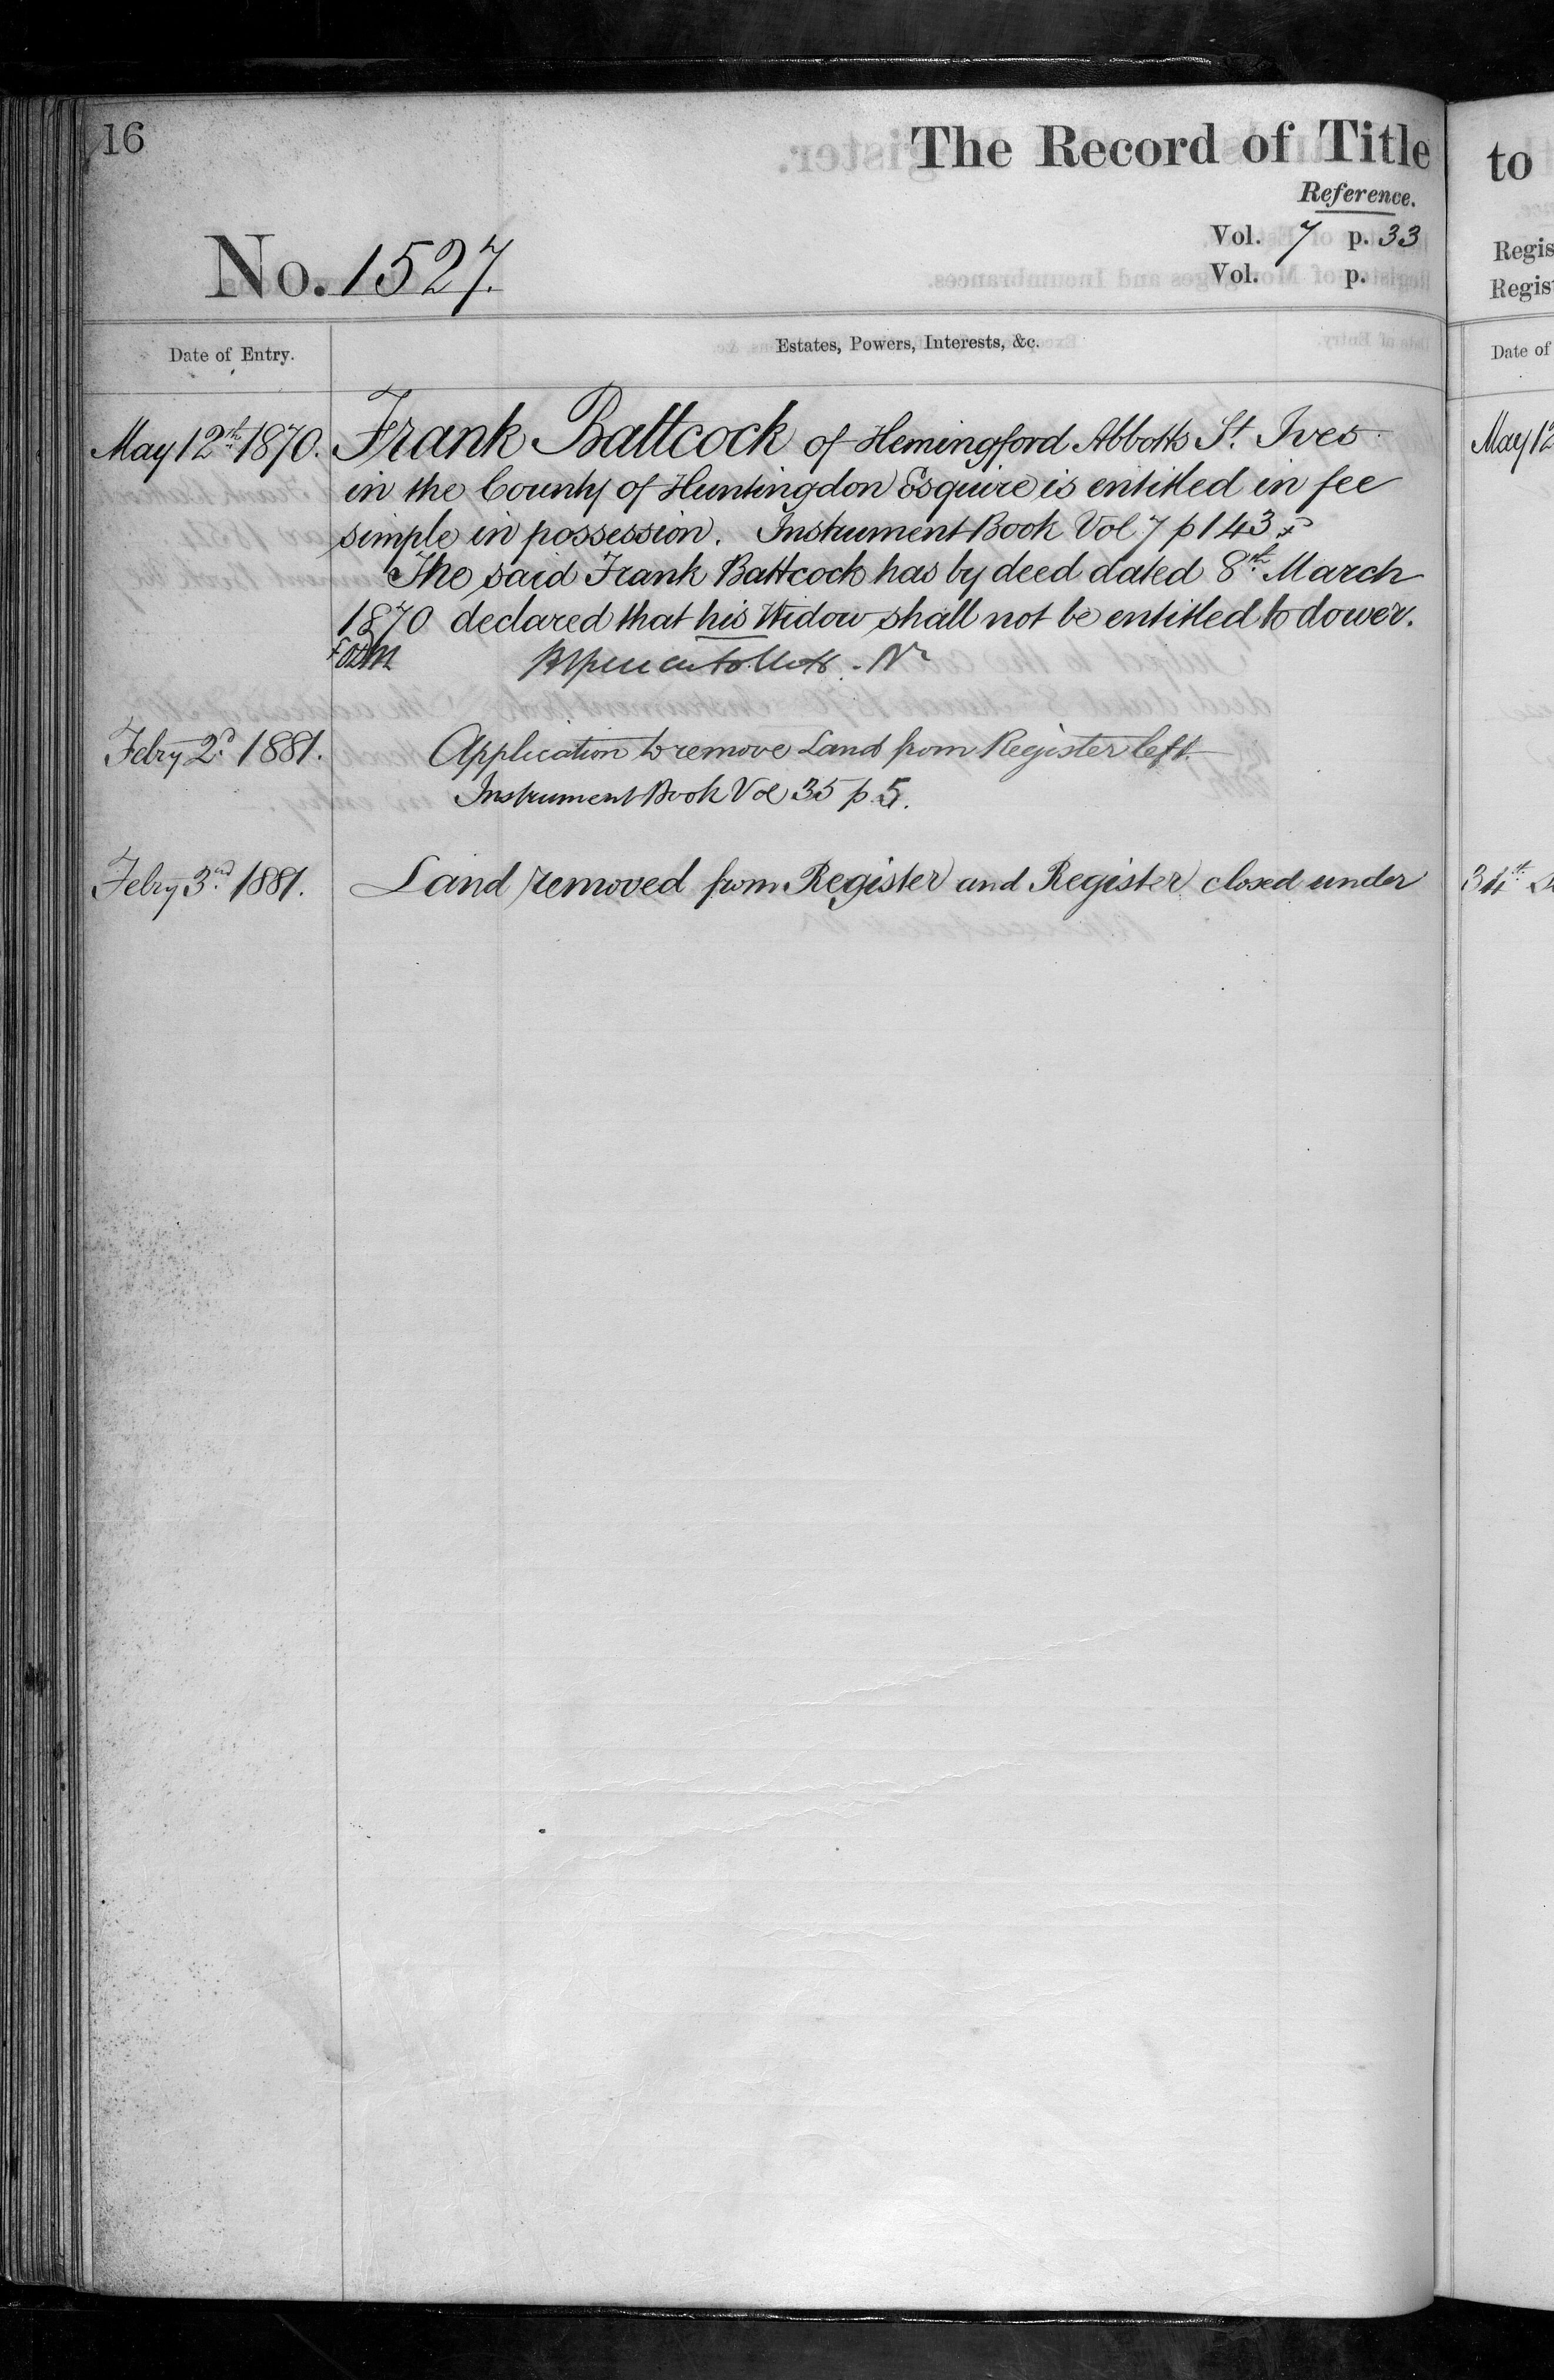 16
The Record of Title
Reference.
Vol. 7 p. 33
Vol. p.
No. 1527.
Date of Entry.
Estates, Powers, Interests, &c.
May 12th 1870. Frank Battcock of Hemingford Abbotts St. Ives
in the County of Huntingdon Esquire is entitled in fee
simple in possession. Instrument Book Vol 7 p 143 x
The said Frank Battcock has by deed dated 8th March
1870 declared that his Widow shall not be entitled to dower.
Febry 2d. 1881. Application to remove Land from Register left.
Instrument Book Vol 35 p. 5.
Febry 3rd. 1881. Land removed from Register and Register closed under
to
Regis
Regist
Date of
May 12
34th